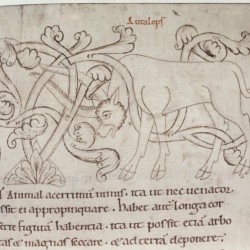 Antalops
Animal acerrimum nimis. ita ut nec venator
possit ei appropinquare. habet aute longa cor
figura habentia. ita ut possit etia arbo
magnas seccare. & ad terra deponere.